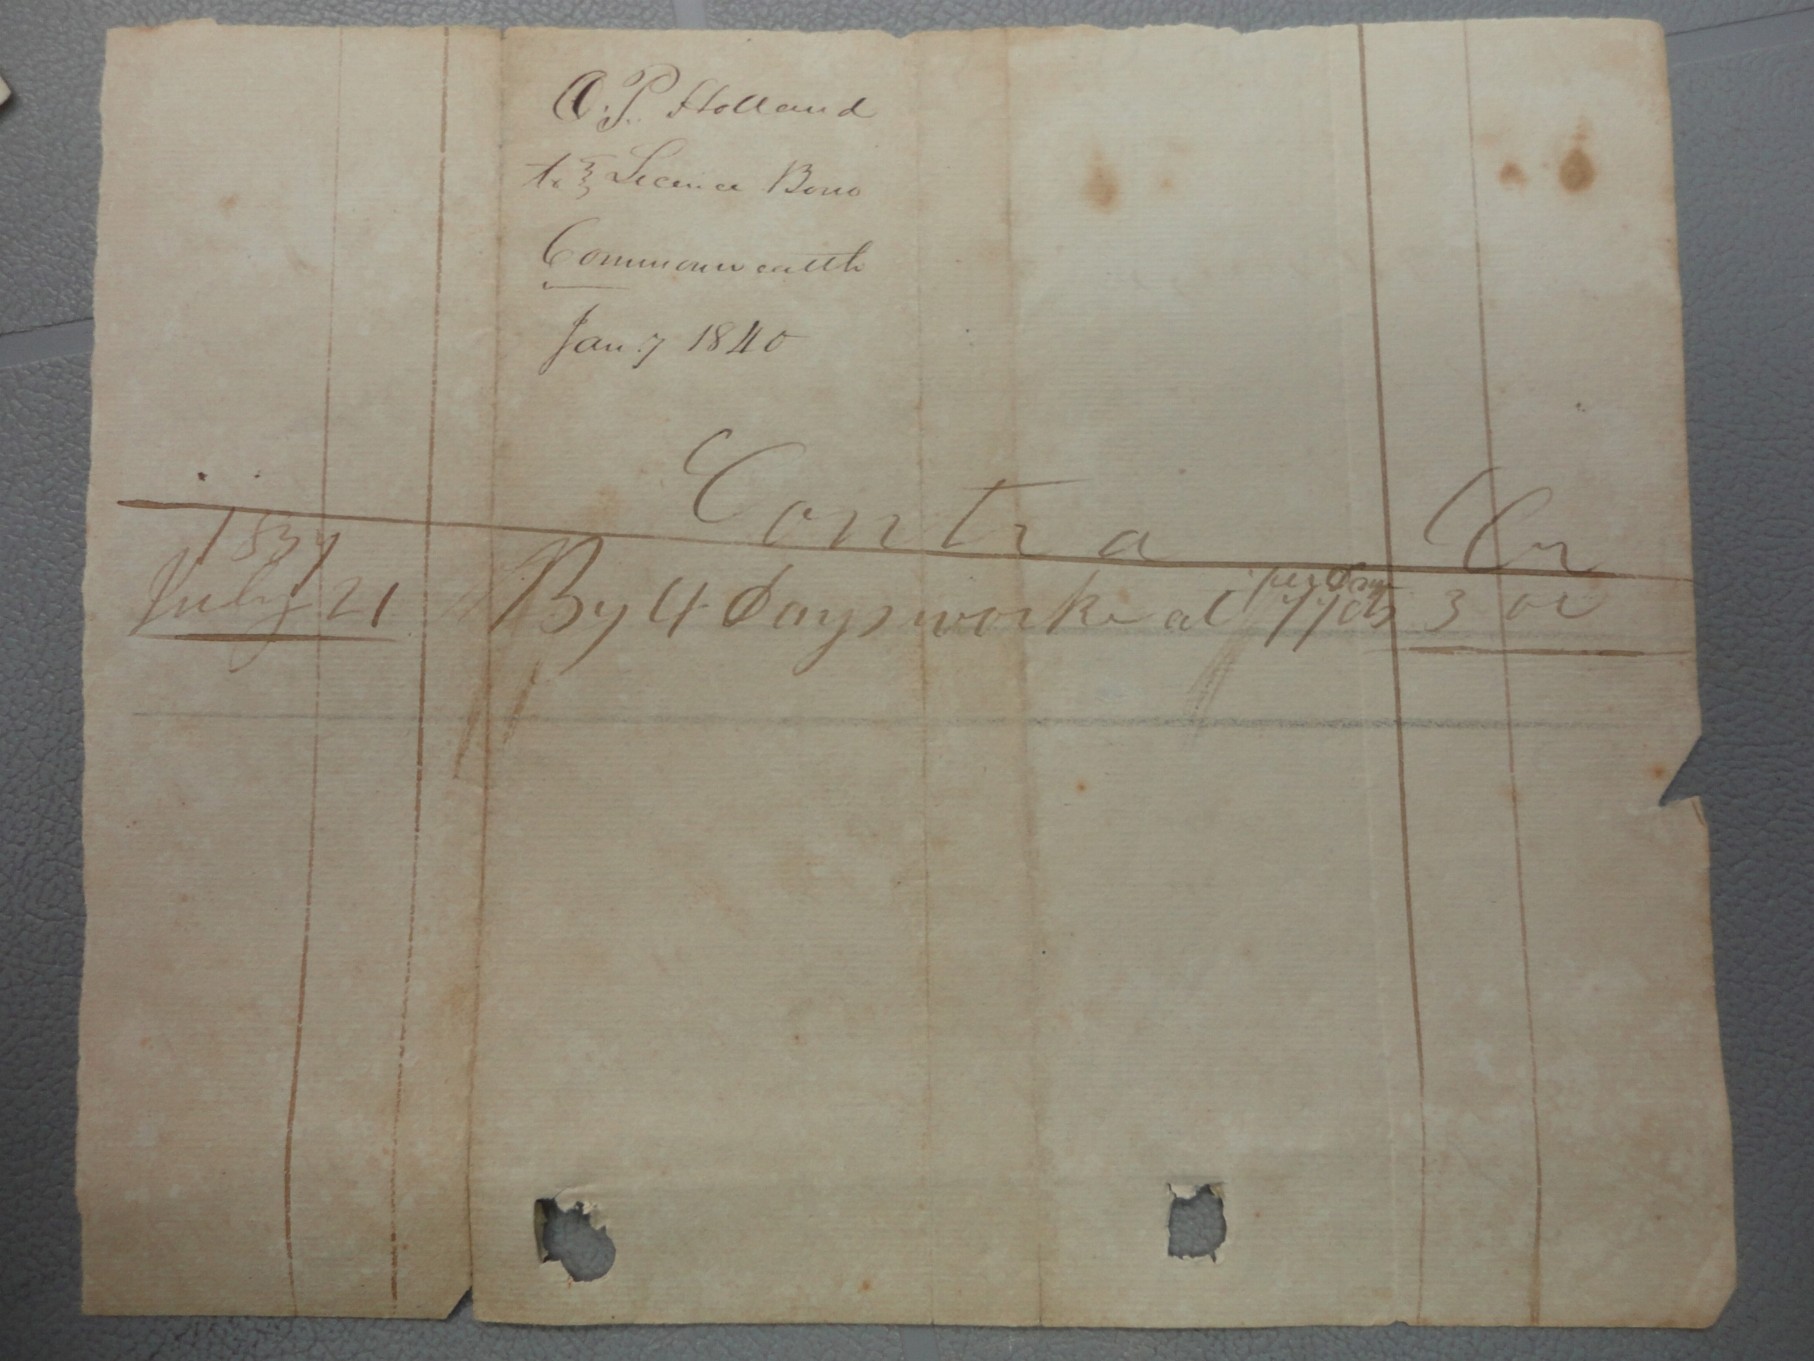 O. P. Holland
to } Licence Bond
Commonwealth
Jan 7 1840
Contra Cr
1839
July 21 By 4 Days worke at per Day 77 cts 3 00